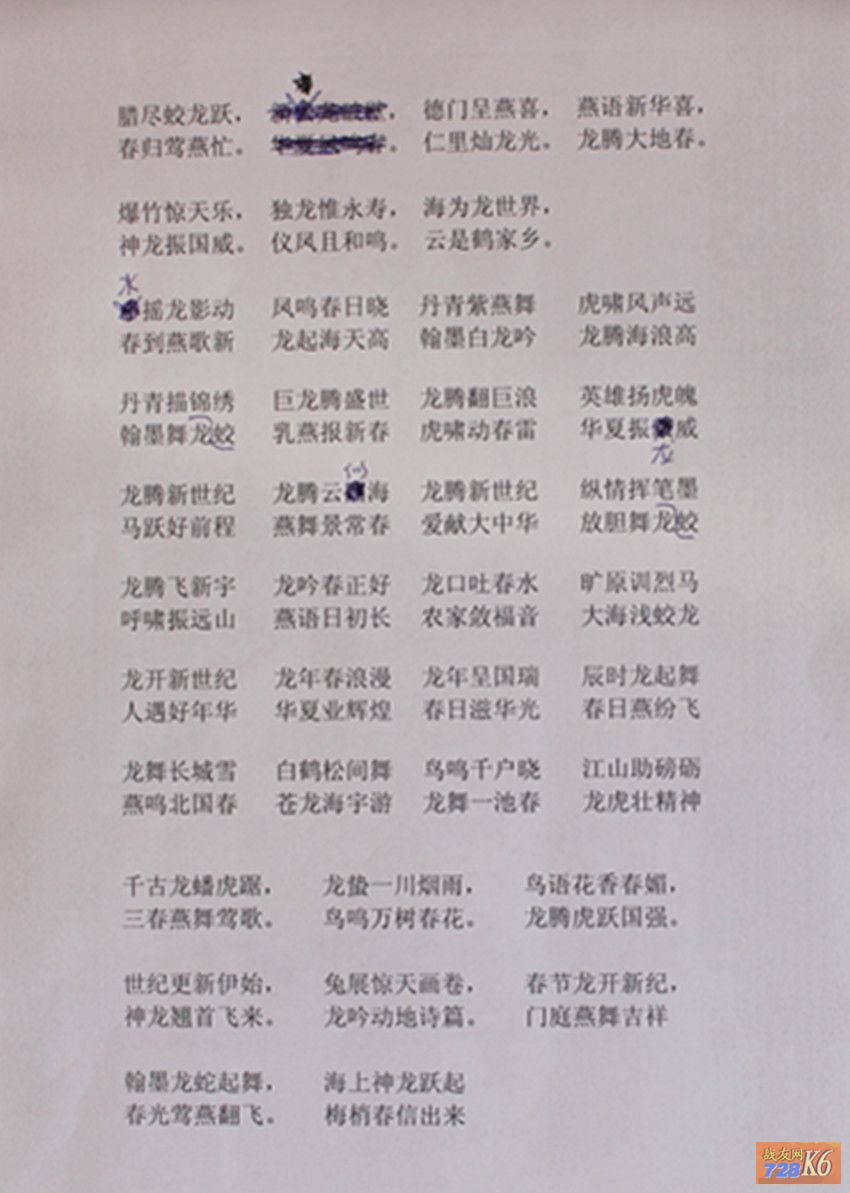 腊尽蛟龙跃， ， 德门呈燕喜， 燕语新华喜，
春归莺燕忙。 。 仁里灿龙光。 龙腾大地春。
爆竹惊天乐， 独龙惟永寿， 海为龙世界，
神龙振国威。 仪凤且和鸣。 云是鹤家乡。
水
摇龙影动 凤鸣春日晓 丹青紫燕舞 虎啸风声远
春到燕歌新 龙起海天高 翰墨白龙吟 龙腾海浪高
丹青描锦绣 巨龙腾盛世 龙腾翻巨浪 英雄扬虎魄
翰墨舞龙蛟 乳燕报新春 虎啸动春雷 华夏振威
龙
龙腾新世纪 龙腾云海 龙腾新世纪 纵情挥笔墨
马跃好前程 燕舞景常春 爱献大中华 放胆舞龙蛟
龙腾飞新宇 龙吟春正好 龙口吐春水 旷原训烈马
呼啸振远山 燕语日初长 农家敛福音 大海浅蛟龙
龙开新世纪 龙年春浪漫 龙年呈国瑞 辰时龙起舞
人遇好年华 华夏业辉煌 春日滋华光 春日燕纷飞
龙舞长城雪 白鹤松间舞 鸟鸣千户晓 江山助磅砺
燕鸣北国春 苍龙海宇游 龙舞一池春 龙虎壮精神
千古龙蟠虎踞， 龙蛰一川烟雨， 鸟语花香春媚，
三春燕舞莺歌。 鸟鸣万树春花。 龙腾虎跃国强。
世纪更新伊始， 兔展惊天画卷， 春节龙开新纪，
神龙翘首飞来。 龙吟动地诗篇。 门庭燕舞吉祥
翰墨龙蛇起舞， 海上神龙跃起
春光莺燕翻飞。 梅梢春信出来
战友网
728K6